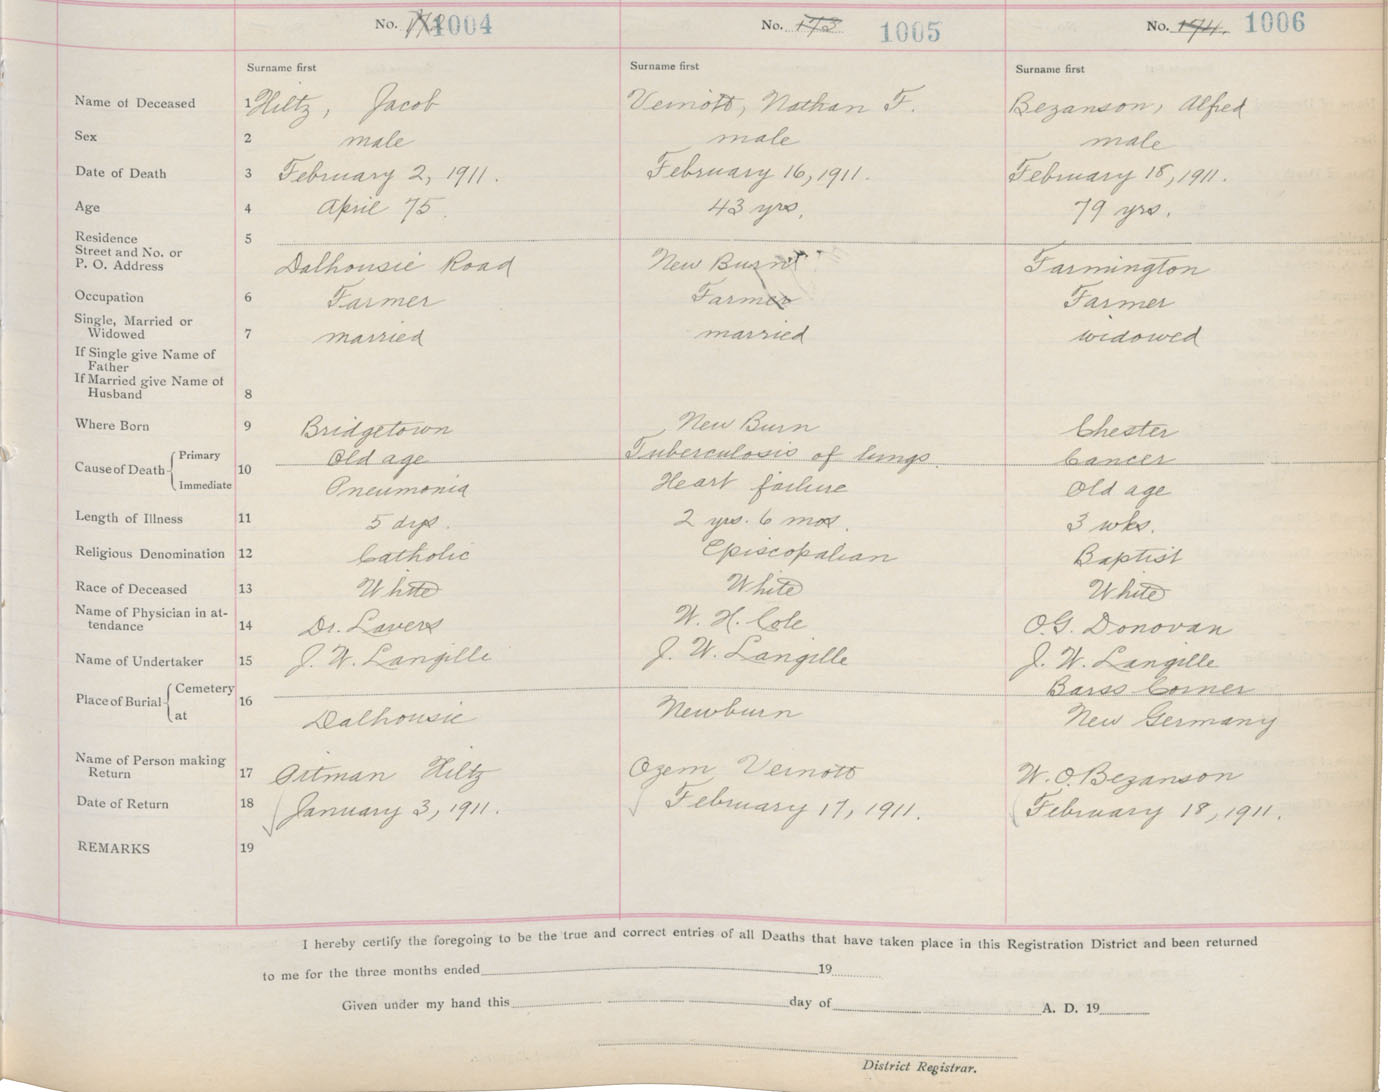 No. 1004 No. 173 1005 No. 174. 1006
Surname first Surname first Surname first
Name of Deceased 1 Hiltz, Jacob Veinott, Nathan F. Bezanson, Alfred
Sex 2 male male male
Date of Death 3 February 2, 1911. February 16, 1911. February 18, 1911.
Age 4 April 75. 43 yrs. 79 yrs.
Residence 5
Street and No. or
P. O. Address Dalhousie Road New Burn Farmington
Occupation 6 Farmer Farmer Farmer
Single, Married or
Widowed 7 married married widowed
If Single give Name of
Father
If Married give Name of
Husband 8
Where Born 9 Bridgetown New Burn Chester
Cause of Death Primary 10 Old age Tuberculosis of lungs. Cancer
Immediate Pneumonia Heart failure Old age
Length of Illness 11 5 dys. 2 yrs. 6 mos. 3 wks.
Religious Denomination 12 Catholic Episcopalian Baptist
Race of Deceased 13 White White White
Name of Physician in at-
tendance 14 Dr. Lavers W. H. Cole O.G. Donovan
Name of Undertaker 15 J. W. Langille J. W. Langille J. W. Langille
Place of Burial Cemetery 16 Barss Corner
at Dalhousie Newburn New Germany
Name of Person making
Return 17 Hiltz Ozem Veinott W. O. Bezanson
Date of Return 18 January 3, 1911. February 17, 1911. February 18, 1911.
REMARKS 19
I hereby certify the foregoing to be the true and correct entries of all Deaths that have taken place in this Registration District and been returned
to me for the three months ended 19
Given under my hand this day of A. D. 19
District Registrar.